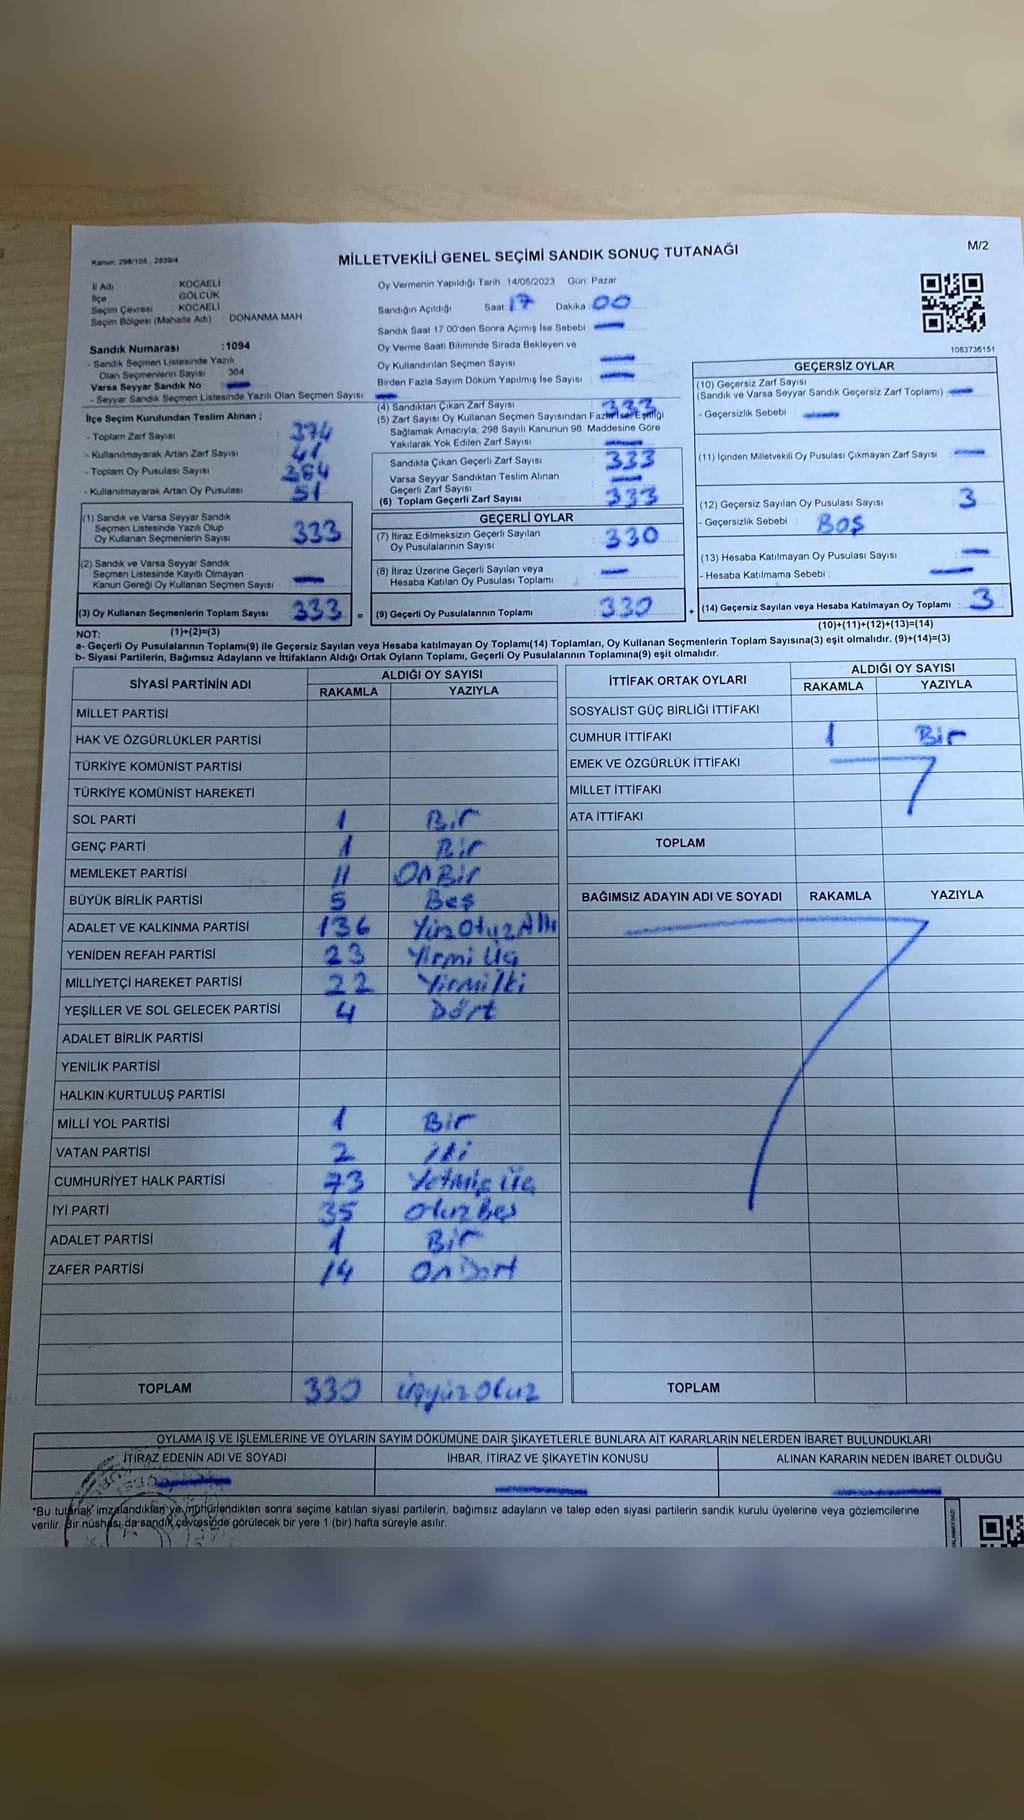 Kanun: 298/105 , 2839/4
MİLLETVEKİLİ GENEL SEÇİMİ SANDIK SONUÇ TUTANAĞI
M/2
İl Adı : KOCAELİ
İlçe : GÖLCÜK
Seçim Çevresi : KOCAELİ
Seçim Bölgesi (Mahalle Adı) : DONANMA MAH
Sandık Numarası :1094
- Sandık Seçmen Listesinde Yazılı
Olan Seçmenlerin Sayısı : 364
Varsa Seyyar Sandık No :
- Seyyar Sandık Seçmen Listesinde Yazılı Olan Seçmen Sayısı :
İlçe Seçim Kurulundan Teslim Alınan ;
- Toplam Zarf Sayısı : 374
- Kullanılmayarak Artan Zarf Sayısı : 41
- Toplam Oy Pusulası Sayısı : 384
- Kullanılmayarak Artan Oy Pusulası : 51
(1) Sandık ve Varsa Seyyar Sandık
Seçmen Listesinde Yazılı Olup
Oy Kullanan Seçmenlerin Sayısı : 333
(2) Sandık ve Varsa Seyyar Sandık
Seçmen Listesinde Kayıtlı Olmayan
Kanun Gereği Oy Kullanan Seçmen Sayısı :
(3) Oy Kullanan Seçmenlerin Toplam Sayısı : 333 =
(1)+(2)=(3)
Oy Vermenin Yapıldığı Tarih :14/05/2023 Gün: Pazar
Sandığın Açıldığı Saat : 17 Dakika : 00
Sandık Saat 17:00'den Sonra Açımış İse Sebebi :
Oy Verme Saati Bitiminde Sırada Bekleyen ve
Oy Kullandırılan Seçmen Sayısı :
Birden Fazla Sayım Döküm Yapılmış İse Sayısı :
(4) Sandıktan Çıkan Zarf Sayısı : 333
(5) Zarf Sayısı Oy Kullanan Seçmen Sayısından Fazla İse, Eşitliği
Sağlamak Amacıyla, 298 Sayılı Kanunun 98. Maddesine Göre
Yakılarak Yok Edilen Zarf Sayısı :
Sandıkta Çıkan Geçerli Zarf Sayısı : 333
Varsa Seyyar Sandıktan Teslim Alınan
Geçerli Zarf Sayısı :
(6) Toplam Geçerli Zarf Sayısı : 333
GEÇERLİ OYLAR
(7) İtiraz Edilmeksizin Geçerli Sayılan
Oy Pusulalarının Sayısı : 330
(8) İtiraz Üzerine Geçerli Sayılan veya
Hesaba Katılan Oy Pusulası Toplamı :
(9) Geçerli Oy Pusulalarının Toplamı : 330 +
1063736151
GEÇERSİZ OYLAR
(10) Geçersiz Zarf Sayısı
(Sandık ve Varsa Seyyar Sandık Geçersiz Zarf Toplamı) :
- Geçersizlik Sebebi :
(11) İçinden Milletvekili Oy Pusulası Çıkmayan Zarf Sayısı :
(12) Geçersiz Sayılan Oy Pusulası Sayısı : 3
- Geçersizlik Sebebi : BOŞ
(13) Hesaba Katılmayan Oy Pusulası Sayısı :
- Hesaba Katılmama Sebebi :
(14) Geçersiz Sayılan veya Hesaba Katılmayan Oy Toplamı : 3
(10)+(11)+(12)+(13)=(14)
NOT:
a- Geçerli Oy Pusulalarının Toplamı(9) ile Geçersiz Sayılan veya Hesaba katılmayan Oy Toplamı(14) Toplamları, Oy Kullanan Seçmenlerin Toplam Sayısına(3) eşit olmalıdır. (9)+(14)=(3)
b- Siyasi Partilerin, Bağımsız Adayların ve İttifakların Aldığı Ortak Oyların Toplamı, Geçerli Oy Pusulalarının Toplamına(9) eşit olmalıdır.
SİYASİ PARTİNİN ADI ALDIĞI OY SAYISI
RAKAMLA YAZIYLA
MİLLET PARTİSİ
HAK VE ÖZGÜRLÜKLER PARTİSİ
TÜRKİYE KOMÜNİST PARTİSİ
TÜRKİYE KOMÜNİST HAREKETİ
SOL PARTİ 1 Bir
GENÇ PARTİ 1 Bir
MEMLEKET PARTİSİ 11 OnBir
BÜYÜK BİRLİK PARTİSİ 5 Beş
ADALET VE KALKINMA PARTİSİ 136 YüzOtuzAltı
YENİDEN REFAH PARTİSİ 23 Yirmi Üç
MİLLİYETÇİ HAREKET PARTİSİ 22 Yirmiİki
YEŞİLLER VE SOL GELECEK PARTİSİ 4 Dört
ADALET BİRLİK PARTİSİ
YENİLİK PARTİSİ
HALKIN KURTULUŞ PARTİSİ
MİLLİ YOL PARTİSİ 1 Bir
VATAN PARTİSİ 2 iki
CUMHURİYET HALK PARTİSİ 73 Yetmiş üç
İYİ PARTİ 35 OtuzBeş
ADALET PARTİSİ 1 Bir
ZAFER PARTİSİ 14 OnDört
TOPLAM 330 üçyüz otuz
İTTİFAK ORTAK OYLARI ALDIĞI OY SAYISI
RAKAMLA YAZIYLA
SOSYALİST GÜÇ BİRLİĞİ İTTİFAKI
CUMHUR İTTİFAKI 1 Bir
EMEK VE ÖZGÜRLÜK İTTİFAKI
MİLLET İTTİFAKI
ATA İTTİFAKI
TOPLAM
BAĞIMSIZ ADAYIN ADI VE SOYADI RAKAMLA YAZIYLA
TOPLAM
OYLAMA İŞ VE İŞLEMLERİNE VE OYLARIN SAYIM DÖKÜMÜNE DAİR ŞİKAYETLERLE BUNLARA AİT KARARLARIN NELERDEN İBARET BULUNDUKLARI
İTİRAZ EDENİN ADI VE SOYADI İHBAR, İTİRAZ VE ŞİKAYETİN KONUSU ALINAN KARARIN NEDEN İBARET OLDUĞU
*Bu tutanak imzalandıktan ve mühürlendikten sonra seçime katılan siyasi partilerin, bağımsız adayların ve talep eden siyasi partilerin sandık kurulu üyelerine veya gözlemcilerine
verilir. Bir nüshası da sandık çevresinde görülecek bir yere 1 (bir) hafta süreyle asılır.